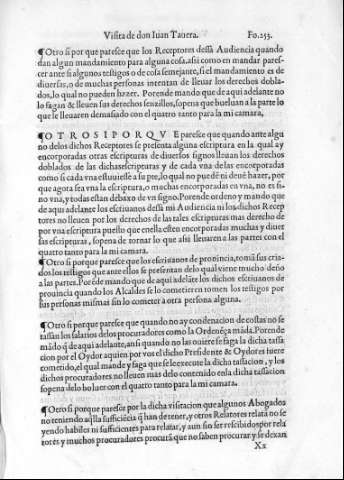 Visita de don Iuan Tauera. Fo.253.
¶Otro si por que paresce que los Receptores dessa Audiencia quando
dan algun mandamiento para alguna cosa, asi como en mandar pares-
cer ante si algunos testigos o de cosa semejante, si el mandamiento es de
diuersas, o de muchas personas intentan de lleuar los derechos dobla-
dos, lo qual no pueden hazer. Por ende mando que de aqui adelante no
lo hagan & lleuen sus derechos senzillos, sopena que bueluan a la parte lo
que se lleuaren demasiado con el quatro tanto para la mi camara,
¶OTROSI PORQV E paresce que quando ante algu
no delos dichos Receptores se presenta alguna escriptura en la qual ay
encorporadas otras escripturas de diuersos signos lleuan los derechos
doblados de las dichas escripturas y de cada vna delas encorporadas
como si cada vna estuuiesse a su pte, lo qual no puedē ni deuē hazer, por
que agora sea vna la escriptura, o muchas encorporadas en vna, no es si-
no vna, y todas estan debaxo de vn signo. Por ende ordeno y mando que
de aqui adelante los escriuanes dessa mi Audiencia ni los dichos Recep
tores no lleuen por los derechos de las tales escripturas mas derecho de
por vna escriptura puesto que enella esten encorporadas muchas y diuer
sas escripturas, sopena de tornar lo que assi lleuaren a las partes con el
quatro tanto para la mi camara.
¶Otro si porque paresce que los escriuanos de prouincia, tomā sus cria-
dos los testigos que ante ellos se presentan delo qual viene mucho daño
a las partes. Por ēde mando que de aqui adelāte los dichos escriuanos de
prouincia quando los Alcaldes se lo cometieren tomen los testigos por
sus personas mismas sin lo cometer a otra persona alguna.
¶Otro si porque paresce que quando no ay condenacion de costas no se
tassan los salarios delos procuradores como la Ordenāça māda. Por ende
mādo q̄ de aqui adelante, ansi quando no las ouiere se faga la dicha tassa
cion por el Oydor a quien por vos el dicho Presidente & Oydores fuere
cometido, el qual mande y faga que se lo execute la dicha tassacion, y los
dichos procuradores no lleuen mas delo contenido enla dicha tassacion
sopena delo boluer con el quatro tanto para la mi camara.
¶Otro si porque paresce por la dicha visitacion que algunos Abogados
no teniendo aq̄lla suficiēcia q̄ han de tener, y otros Relatores relatā no se
yendo habiles ni suficientes para relatar, y aun sin ser rescibidos por rela
tores y muchos procuradores procurā que no saben procurar y se dexan
Xx